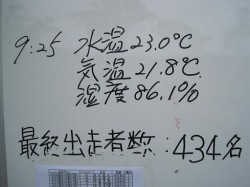 9:25 水温23.0℃
気温21.8℃
湿度86.1%
最終出走者数:434名